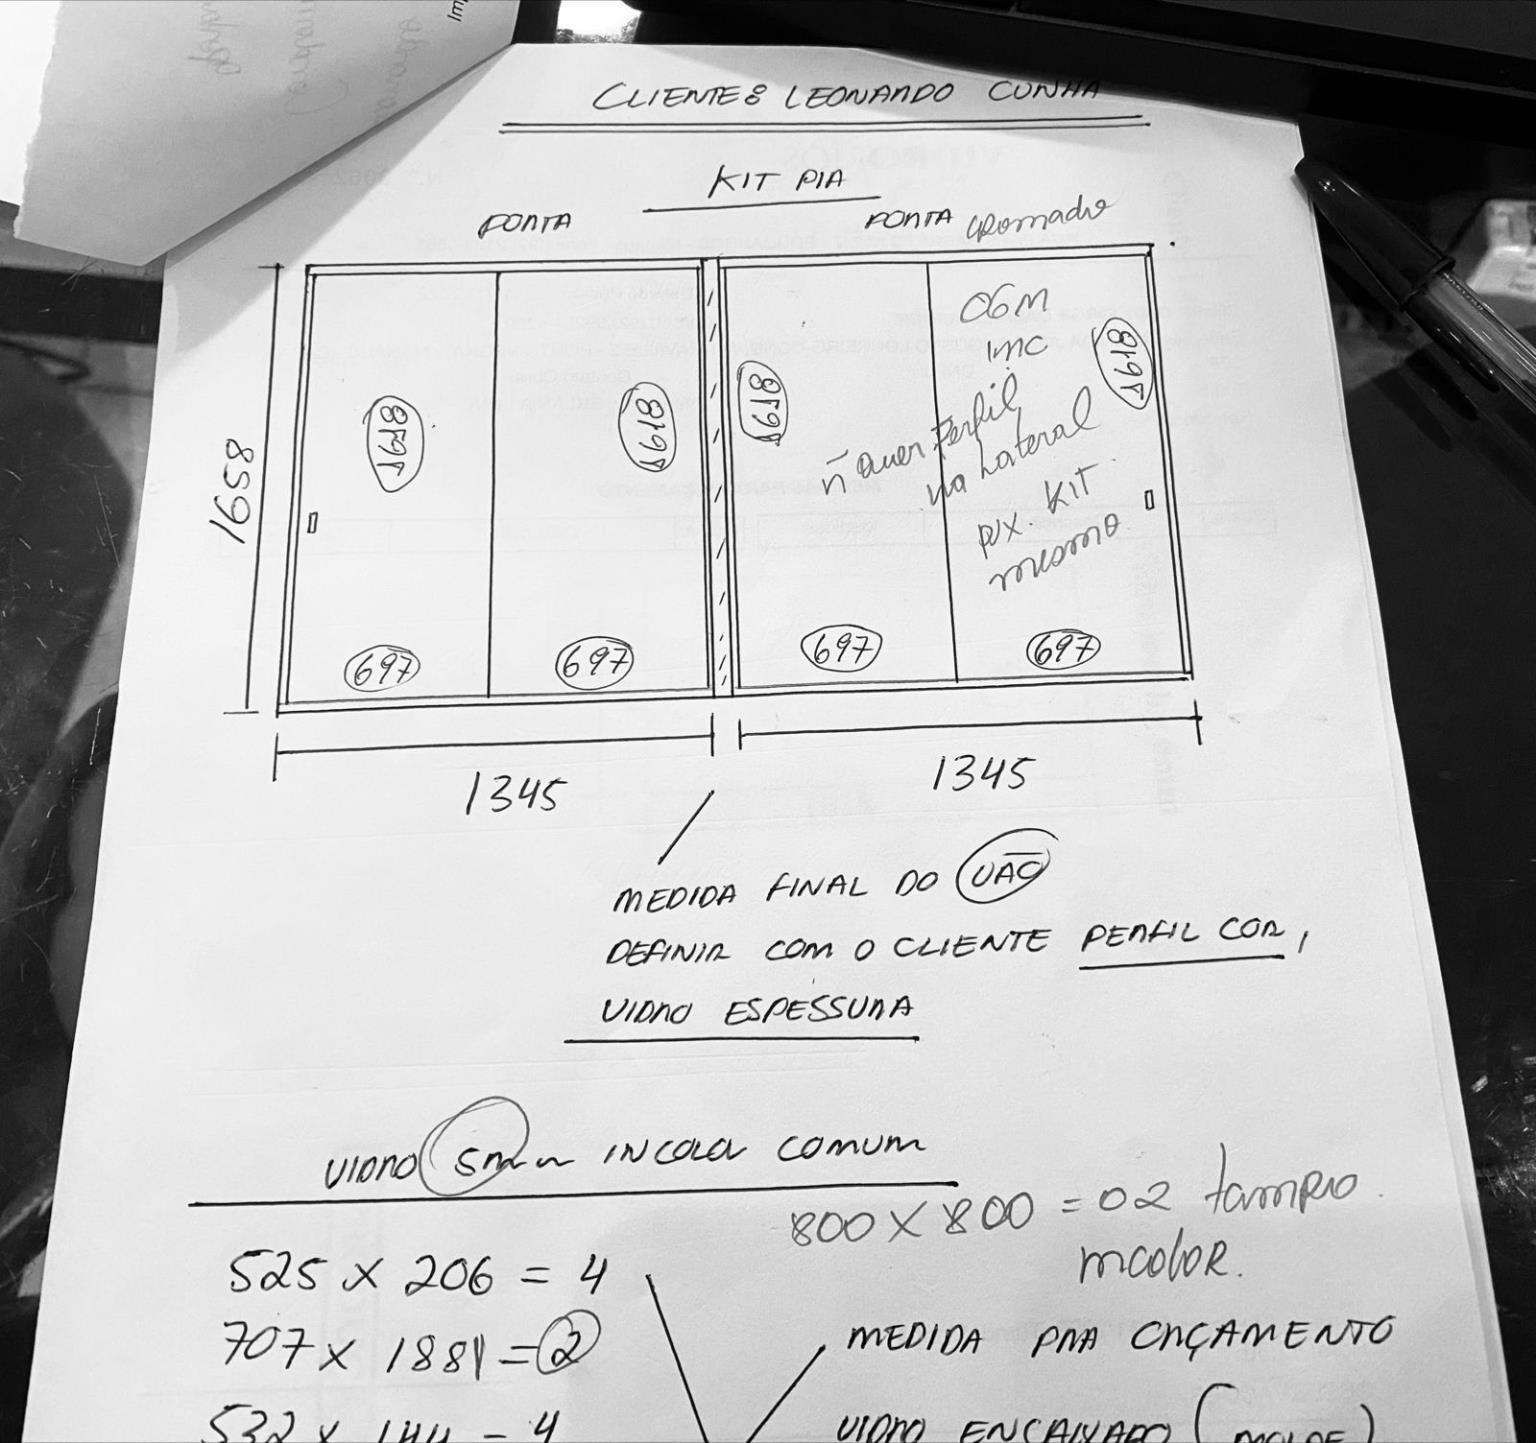 CLIENTE: LEONARDO CUNHA
KIT PIA
PORTA
PORTA cromado
06M
INC
ñ quer Perfil
na Lateral
PUX. KIT
mesmo
1658
1619
1619
1619
1619
697
697
697
697
1345
1345
MEDIDA FINAL DO VÃO
DEFINIR COM O CLIENTE PERFIL COR,
VIDRO ESPESSURA
VIDRO 5mm INCOLOR COMUM
800 X 800 = 02 tampo
incoloR.
525 X 206 = 4
707 X 1881 = 2
532 X 144 = 4
MEDIDA PRA ORÇAMENTO
VIDRO ENCAIXADO (MOLDE)